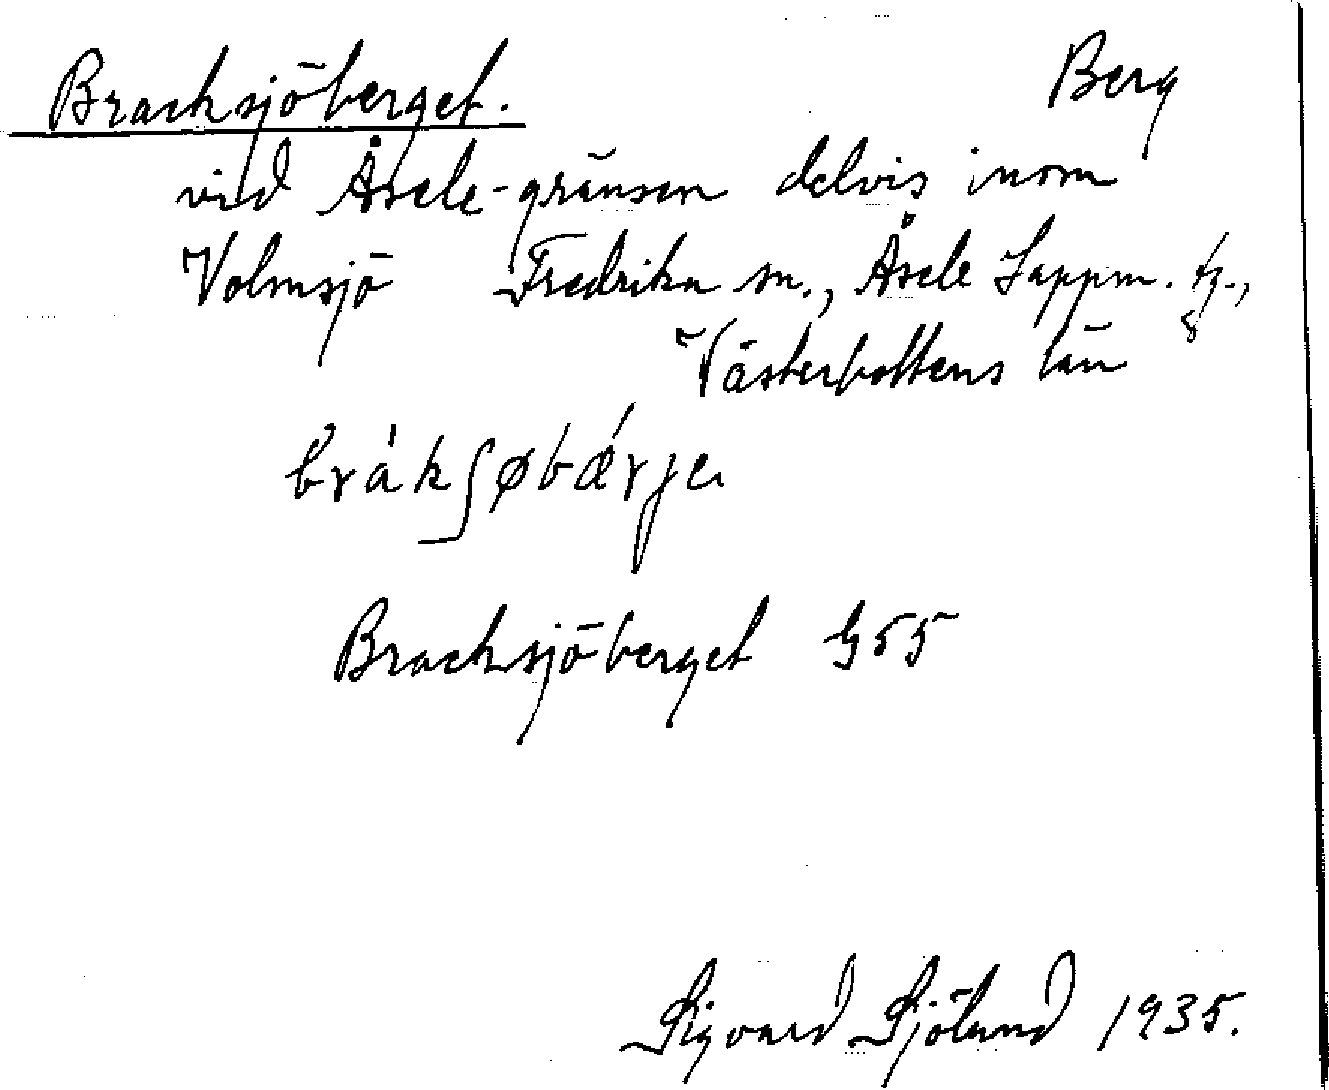 Bracksjöberget. Berg
vid Åsele-gränsen delvis inom
Volmsjö Fredrika sn., Åsele Lappm. tg.,
Västerbottens län
bråkʃøbǽrje
Bracksjöberget G55
Sigvard Sjölund 1935.